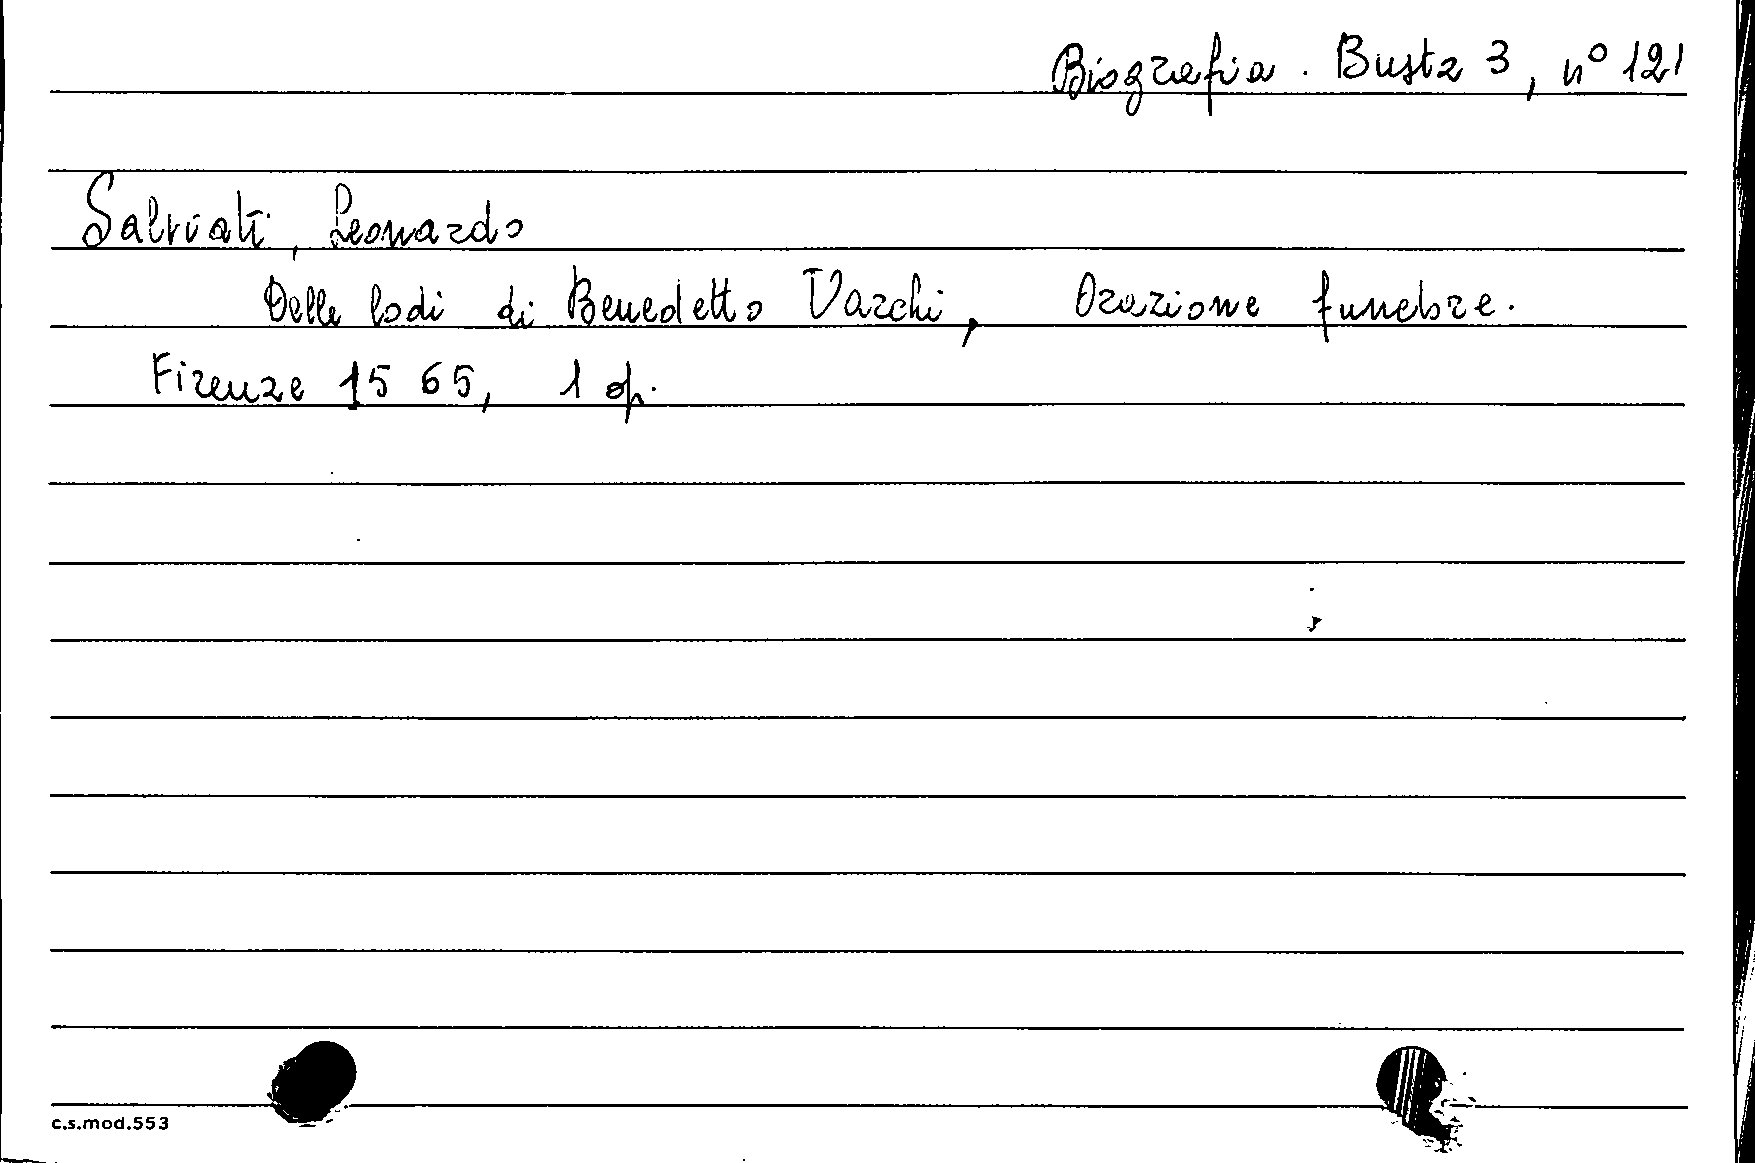 Biografia. Busta 3, n° 121
Salviati, Leonardo
Delle lodi di Benedetto Varchi, Orazione funebre.
Firenze 1565, 1 op.
c.s.mod.553